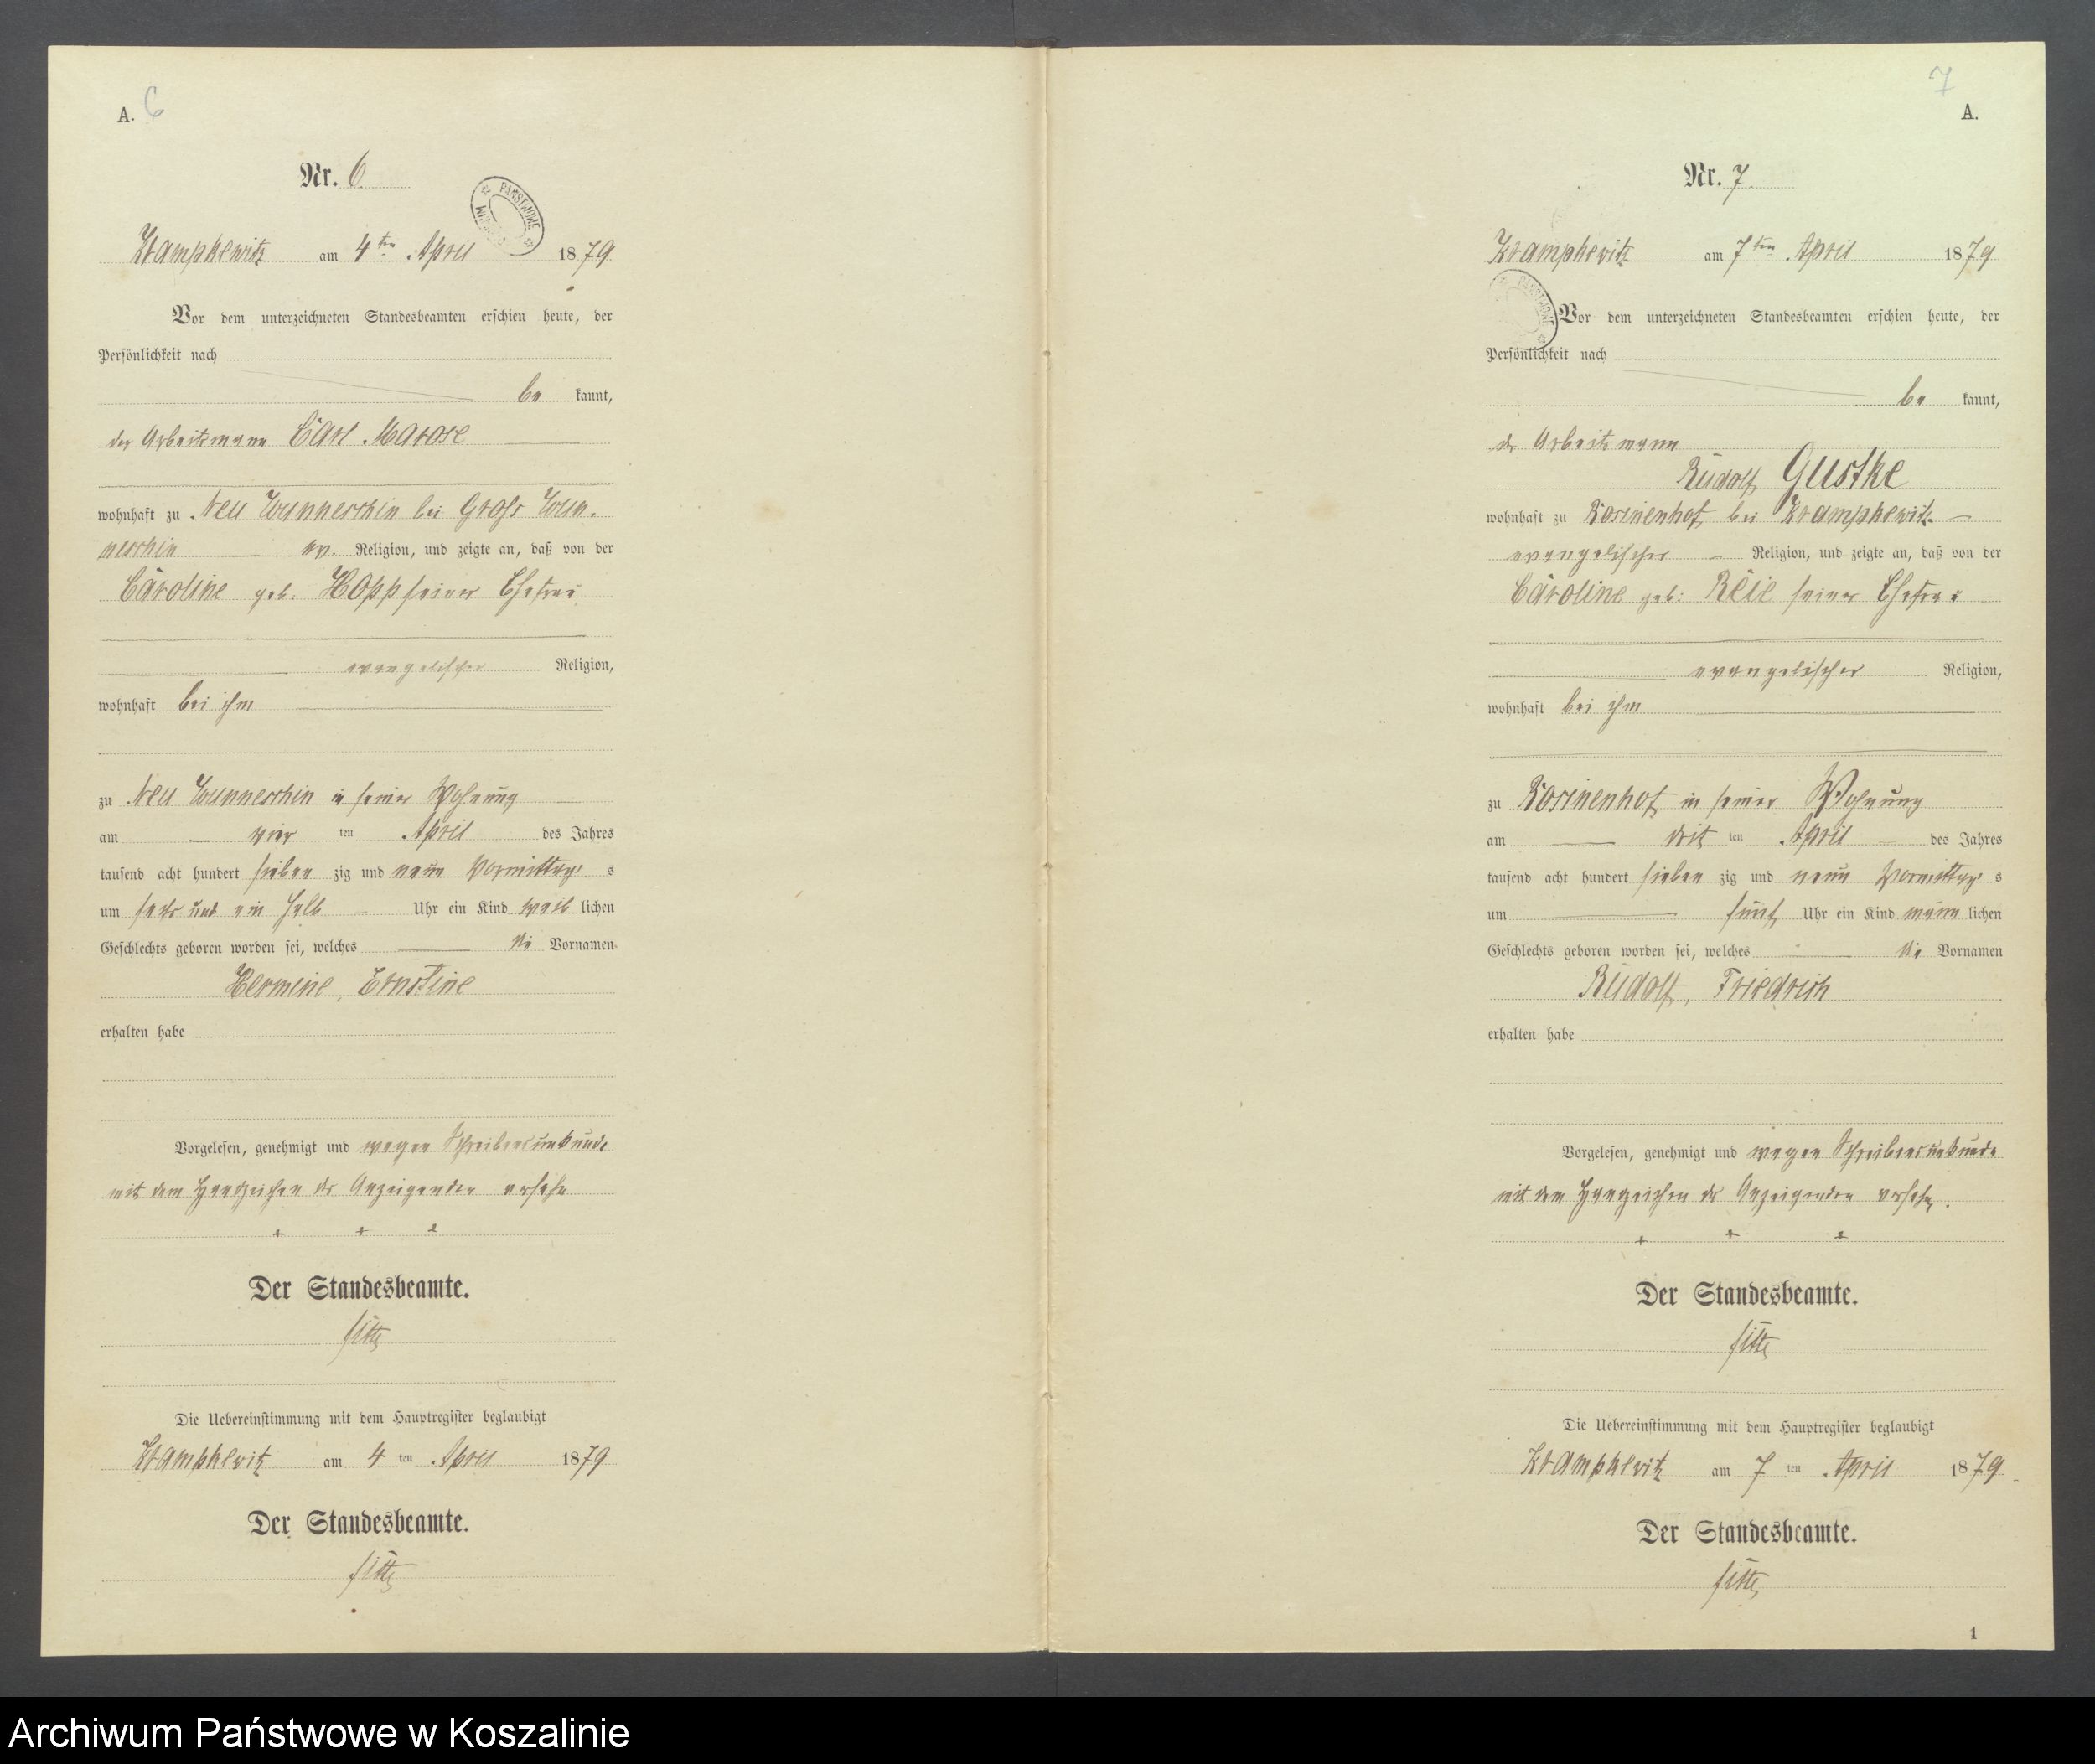 A. 6
Nr. 6.
Krampkewitz am 4ten April 1879
Vor dem unterzeichneten Standesbeamten erschien heute, der
Persönlichkeit nach
be kannt,
der Arbeitsmann Carl Marose
wohnhaft zu Neu Wunneschin bei Gross Wun-
neschin ev. Religion, und zeigte an, daß von der
Caroline geb: Hopp seiner Ehefrau
evangelischer Religion,
wohnhaft bei ihm
zu Neu Wunneschin in seiner Wohnung
am vier ten April des Jahres
tausend acht hundert sieben zig und neun Vormittag s
um sechs und ein halb Uhr ein Kind weib lichen
Geschlechts geboren worden sei, welches die Vornamen
Hermine, Ernstine
erhalten habe
Vorgelesen, genehmigt und wegen Schreibensunkunde
mit dem Handzeichen des Anzeigenden versehn
+ + +
Der Standesbeamte.
Die Uebereinstimmung mit dem Hauptregister beglaubigt
Krampkewitz am 4 ten April 1879
Der Standesbeamte.
7
A.
Nr. 7.
Krampkewitz am 7ten April 1879
Vor dem unterzeichneten Standesbeamten erschien heute, der
Persönlichkeit nach
be kannt,
der Arbeitsmann
Rudolf Gustke
wohnhaft zu Rosinenhof bei Krampkewitz
evangelischer Religion, und zeigte an, daß von der
Caroline geb: seiner Ehefrau
evangelischer Religion,
wohnhaft bei ihm
zu Rosinenhof in seiner Wohnung
am drit ten April des Jahres
tausend acht hundert sieben zig und neun Vormittag s
um fünf Uhr ein Kind männ lichen
Geschlechts geboren worden sei, welches die Vornamen
Rudolf, Friedrich
erhalten habe
Vorgelesen, genehmigt und wegen Schreibensunkunde
mit dem Handzeichen des Anzeigenden versehn.
+ + +
Der Standesbeamte.
Die Uebereinstimmung mit dem Hauptregister beglaubigt
Krampkewitz am 7 ten April 1879
Der Standesbeamte.
1
Archiwum Państwowe w Koszalinie